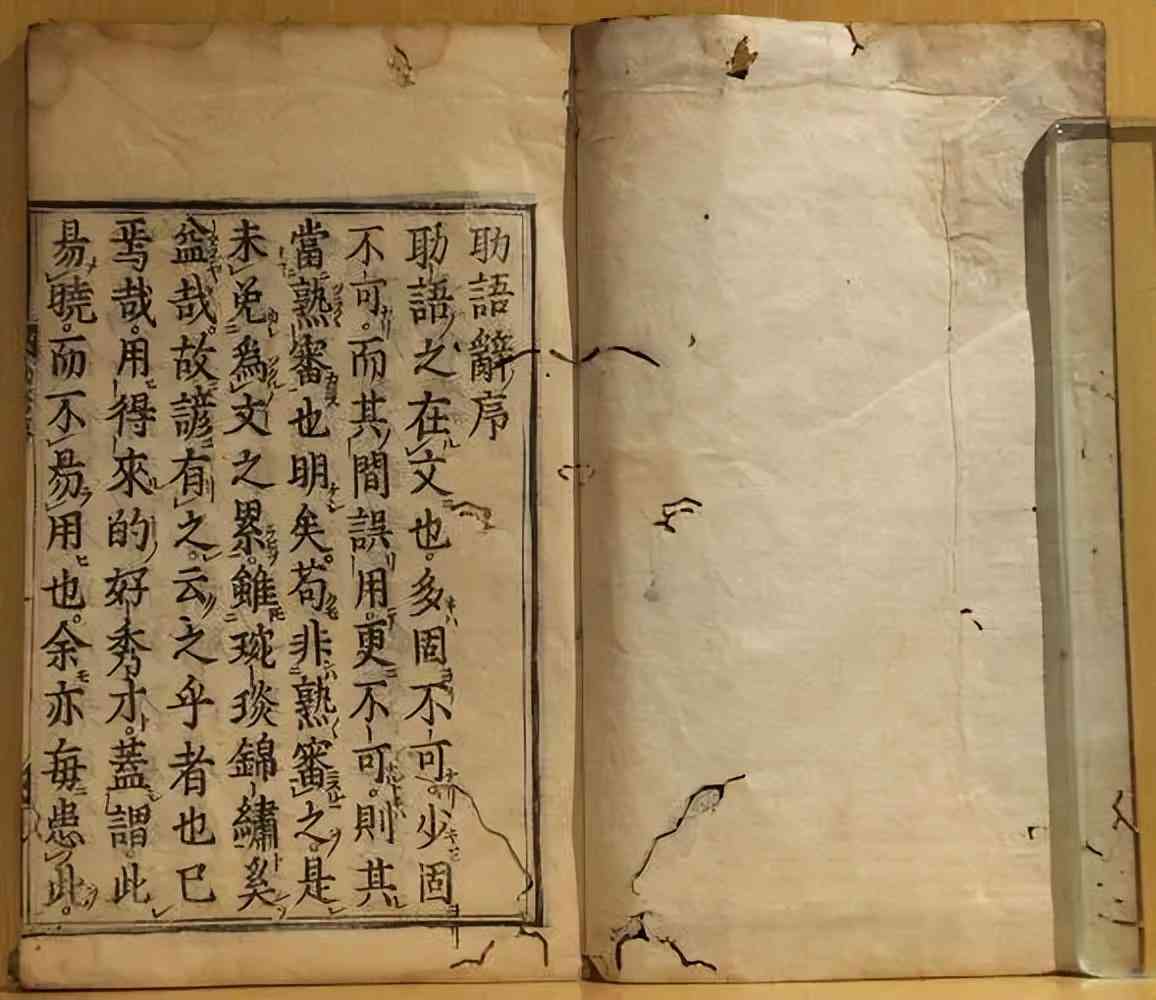 助語辭序
助語之在文也。多固不可。少固
不可。而其間誤用。更不可。則其
當熟審也明矣。苟非熟審之。是
未免爲文之累。雖琬琰錦繡奚
益哉。故諺有之。云之乎者也已
焉哉。用得來的好秀才。蓋謂此
易曉。而不易用也。余亦毎患此。